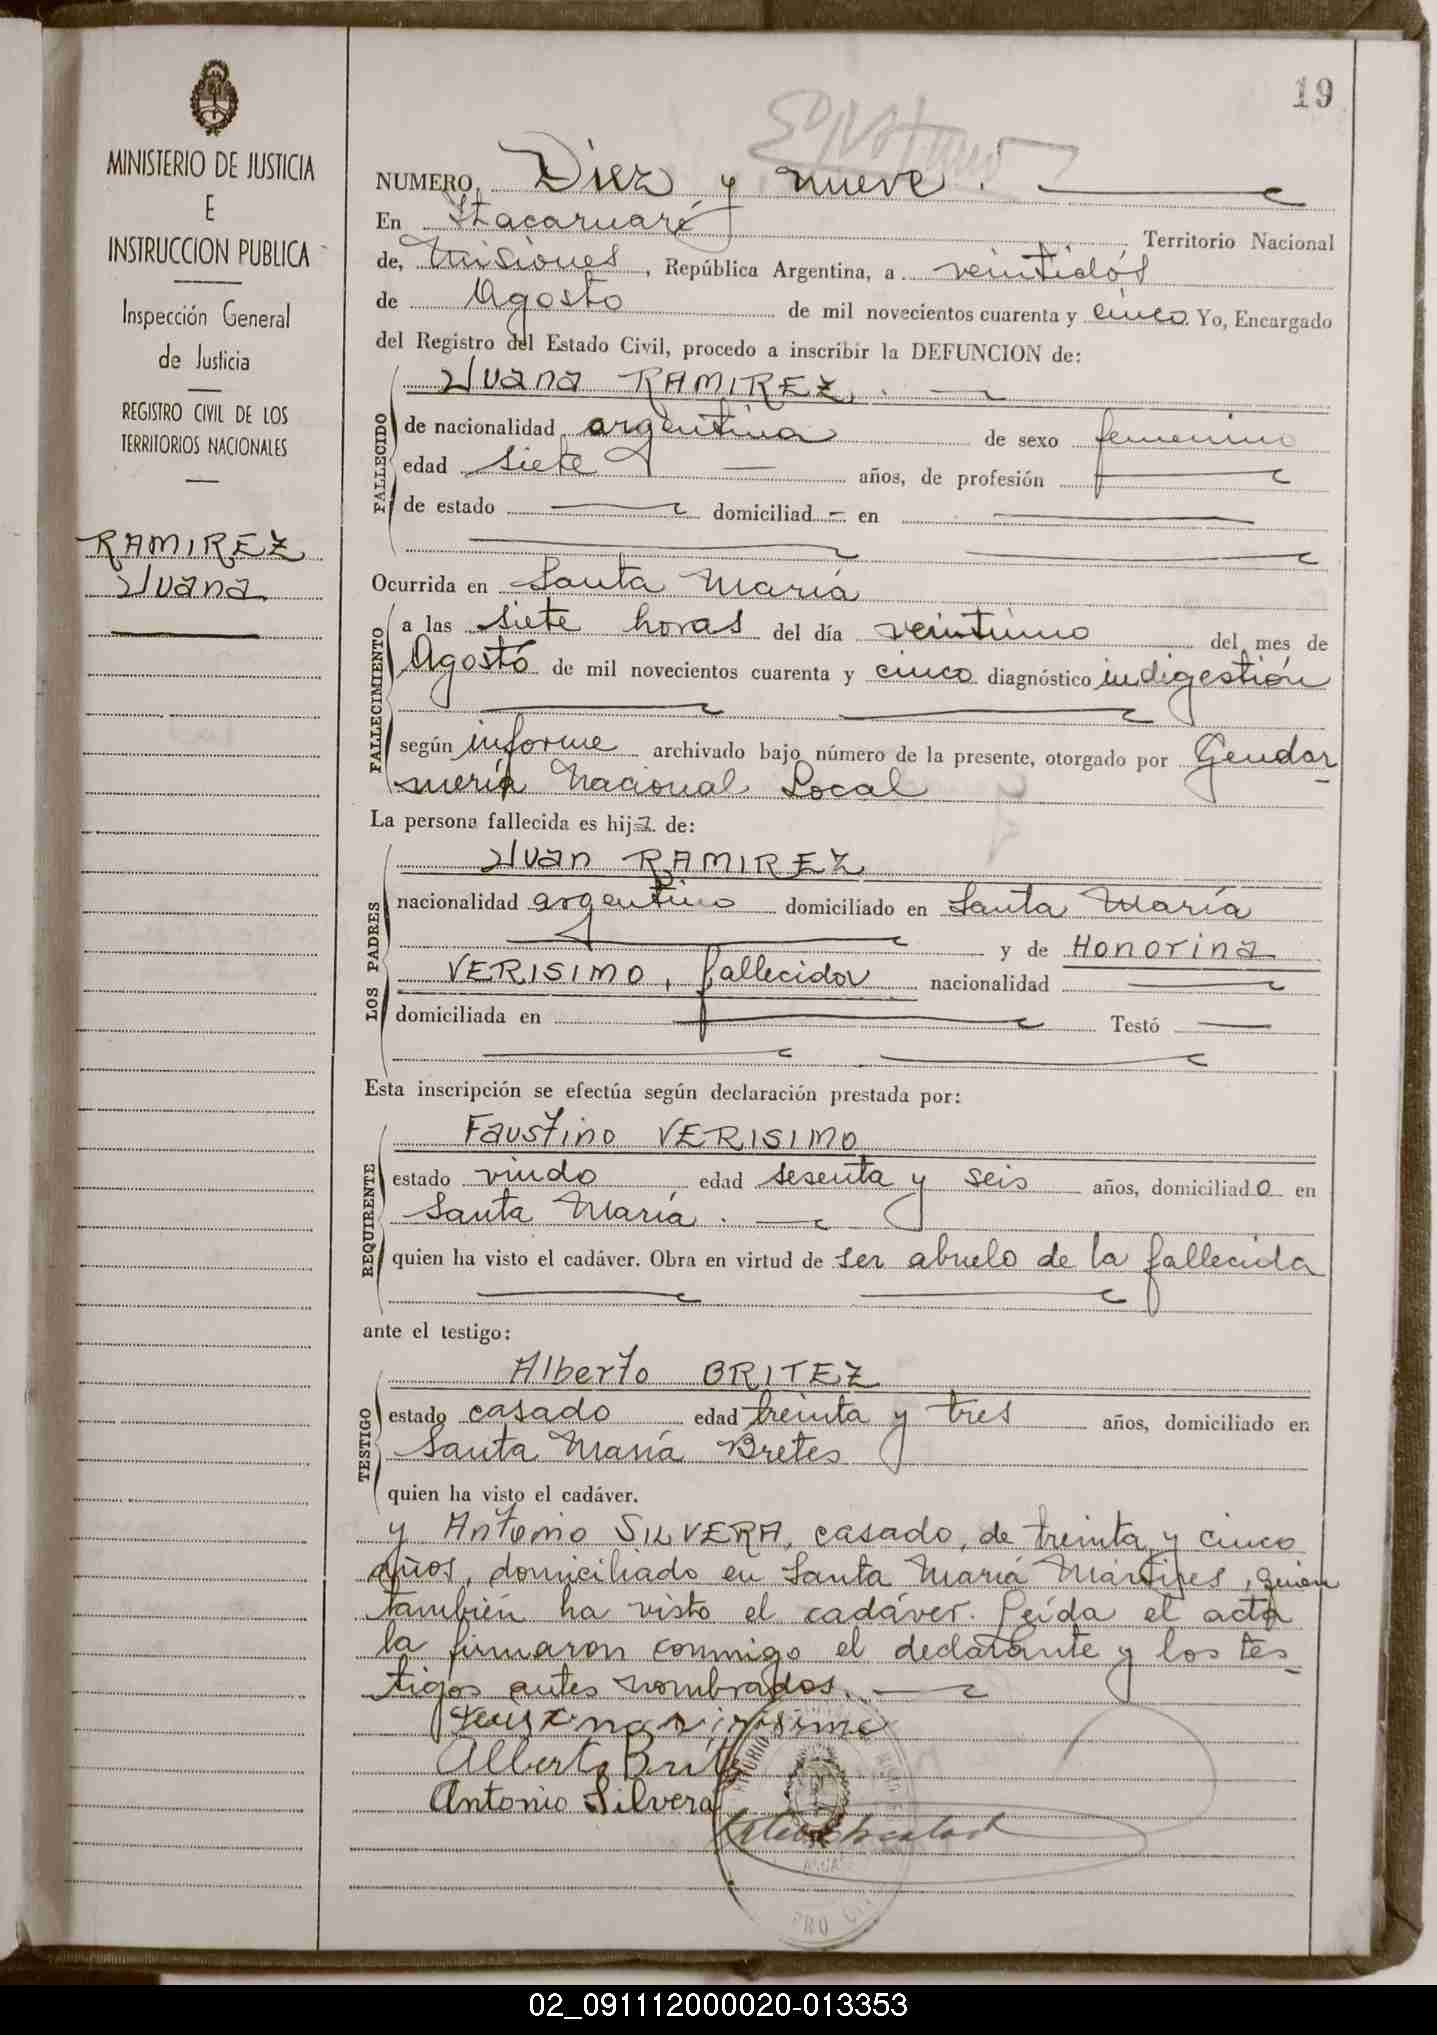 19
MINISTERIO DE JUSTICIA
E
INSTRUCCION PUBLICA
Inspección General
de Justicia
REGISTRO CIVIL DE LOS
TERRITORIOS NACIONALES
RAMIREZ
Juana
NUMERO Diez y nueve.
En Itacaruaré Territorio Nacional
de, Misiones, República Argentina, a veintidós
de Agosto de mil novecientos cuarenta y cinco Yo, Encargado
del Registro del Estado Civil, procedo a inscribir la DEFUNCION de:
FALLECIDO
Juana RAMIREZ.
de nacionalidad argentina de sexo femenino
edad siete años, de profesión
de estado domiciliad en
Ocurrida en Santa María
FALLECIMIENTO
a las siete horas del día veintiuno del mes de
Agosto de mil novecientos cuarenta y cinco diagnóstico indigestión
según informe archivado bajo número de la presente, otorgado por Gendar-
mería Nacional Local
La persona fallecida es hija de:
LOS PADRES
Juan RAMIREZ
nacionalidad argentino domiciliado en Santa María
y de Honorina
VERISIMO, fallecidos nacionalidad
domiciliada en Testó
Esta inscripción se efectúa según declaración prestada por:
REQUIRENTE
Faustino VERISIMO
estado viudo edad sesenta y seis años, domiciliado en
Santa María.
quien ha visto el cadáver. Obra en virtud de ser abuelo de la fallecida
ante el testigo:
TESTIGO
Alberto BRITEZ
estado casado edad treinta y tres años, domiciliado en
Santa María Bretes
quien ha visto el cadáver.
y Antonio SILVERA, casado, de treinta y cinco
años, domiciliado en Santa María Mártires, quien
también ha visto el cadáver. Leída el acta
la firmaron conmigo el declarante y los tes-
tigos antes nombrados.
Alberto
Antonio Silvera
02_091112000020-013353